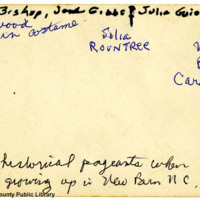 Bishop, Jane Gibbs & Julia Guio
wood
in costume
Julia
ROUNTREE
Car
historical pageants when
growing up in New Bern N.C.
ounty Public Library